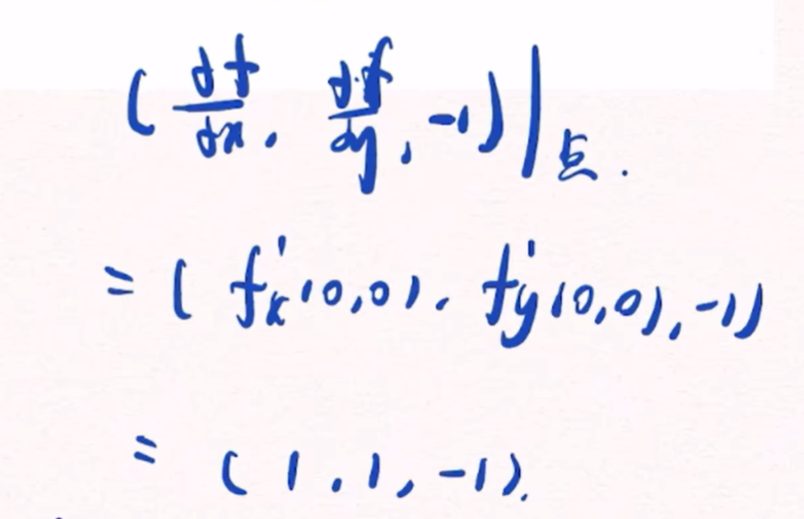 (∂f/∂x, ∂f/∂y, -1)|点.
= (f'x(0,0), f'y(0,0), -1)
= (1, 1, -1).